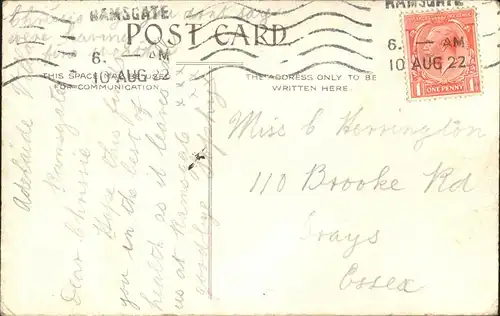 RAMSGATE
6. — AM
10 AUG 22
RAMSGATE
6. — AM
10 AUG 22
POST CARD
THIS SPACE MAY BE USED
FOR COMMUNICATION.
THE ADDRESS ONLY TO BE
WRITTEN HERE.
1 ONE PENNY 1
Miss C Herrington
110 Brooke Rd
Grays
Essex
Adelaide
Ramsgate
Dear Chrissie
Hope this finds
you in the best of
health as it leaves
us at Ramsgate
x x x